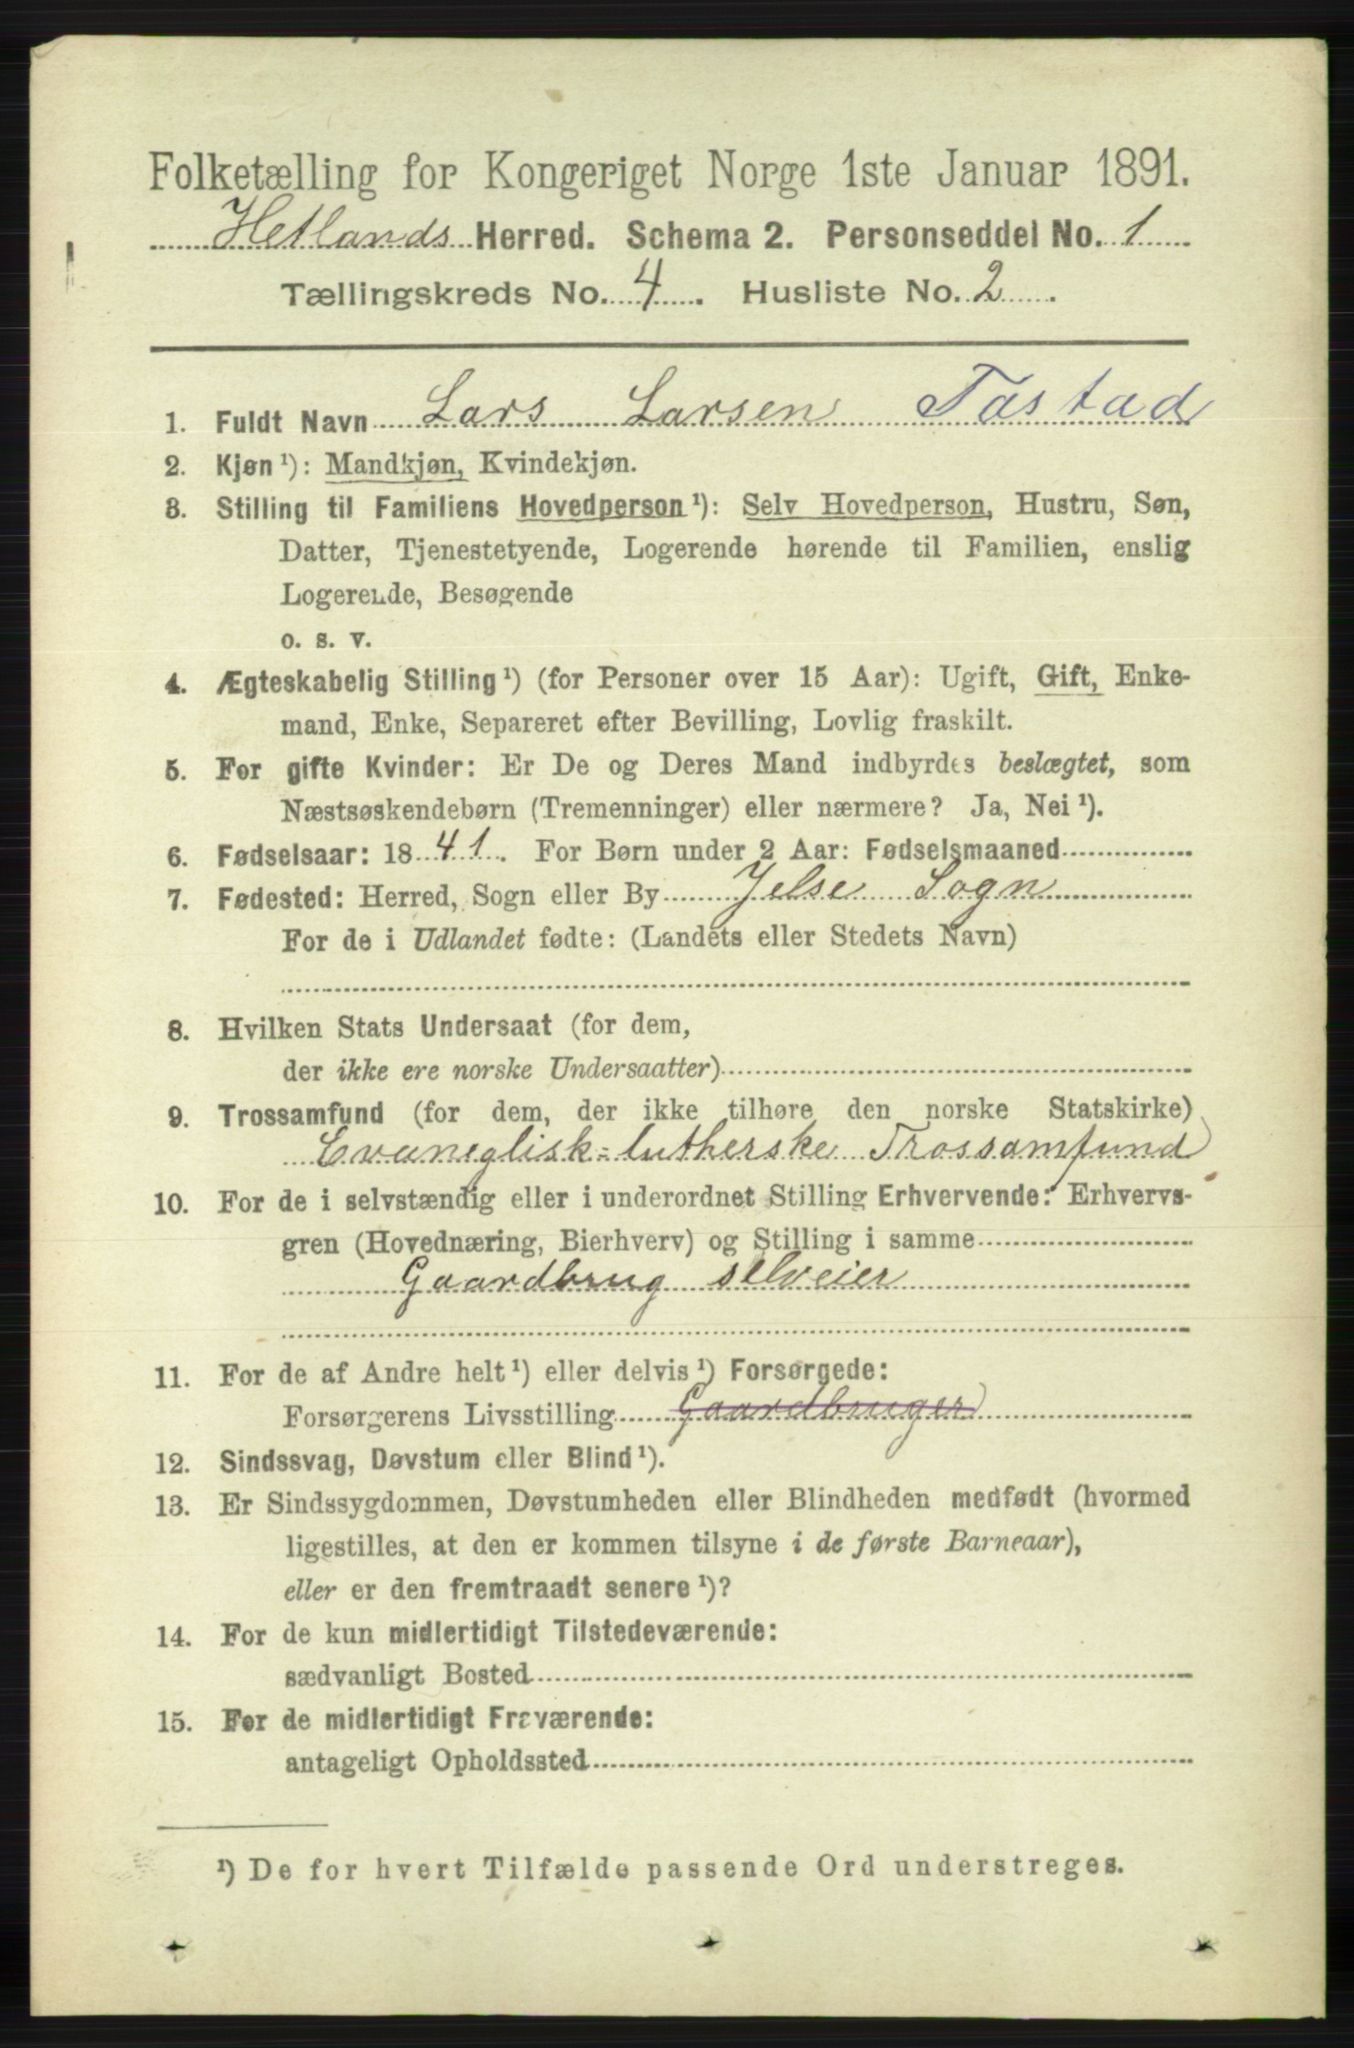 Folketælling for Kongeriget Norge 1ste Januar 1891.
Hetlands Herred. Schema 2. Personseddel No. 1
Tællingskreds No. 4. Husliste No. 2.
1. Fuldt Navn Lars Larsen Tastad
2. Kjøn ¹): Mandkjøn, Kvindekjøn.
3. Stilling til Familiens Hovedperson ¹): Selv Hovedperson, Hustru, Søn,
Datter, Tjenestetyende, Logerende hørende til Familien, enslig
Logerende, Besøgende
o. s. v.
4. Ægteskabelig Stilling ¹) (for Personer over 15 Aar): Ugift, Gift, Enke-
mand, Enke, Separeret efter Bevilling, Lovlig fraskilt.
5. For gifte Kvinder: Er De og Deres Mand indbyrdes beslægtet, som
Næstsøskendebørn (Tremenninger) eller nærmere? Ja, Nei ¹).
6. Fødselsaar: 1841. For Børn under 2 Aar: Fødselsmaaned
7. Fødested: Herred, Sogn eller By Jelse Sogn
For de i Udlandet fødte: (Landets eller Stedets Navn)
8. Hvilken Stats Undersaat (for dem,
der ikke ere norske Undersaatter)
9. Trossamfund (for dem, der ikke tilhøre den norske Statskirke)
Evaneglisk-lutherske Trossamfund
10. For de i selvstændig eller i underordnet Stilling Erhvervende: Erhvervs-
gren (Hovednæring, Bierhverv) og Stilling i samme
Gaardbrug selveier
11. For de af Andre helt ¹) eller delvis ¹) Forsørgede:
Forsørgerens Livsstilling Gaardbruger
12. Sindssvag, Døvstum eller Blind ¹).
13. Er Sindssygdommen, Døvstumheden eller Blindheden medfødt (hvormed
ligestilles, at den er kommen tilsyne i de første Barneaar),
eller er den fremtraadt senere ¹)?
14. For de kun midlertidigt Tilstedeværende:
sædvanligt Bosted
15. For de midlertidigt Fraværende:
antageligt Opholdssted
¹) De for hvert Tilfælde passende Ord understreges.